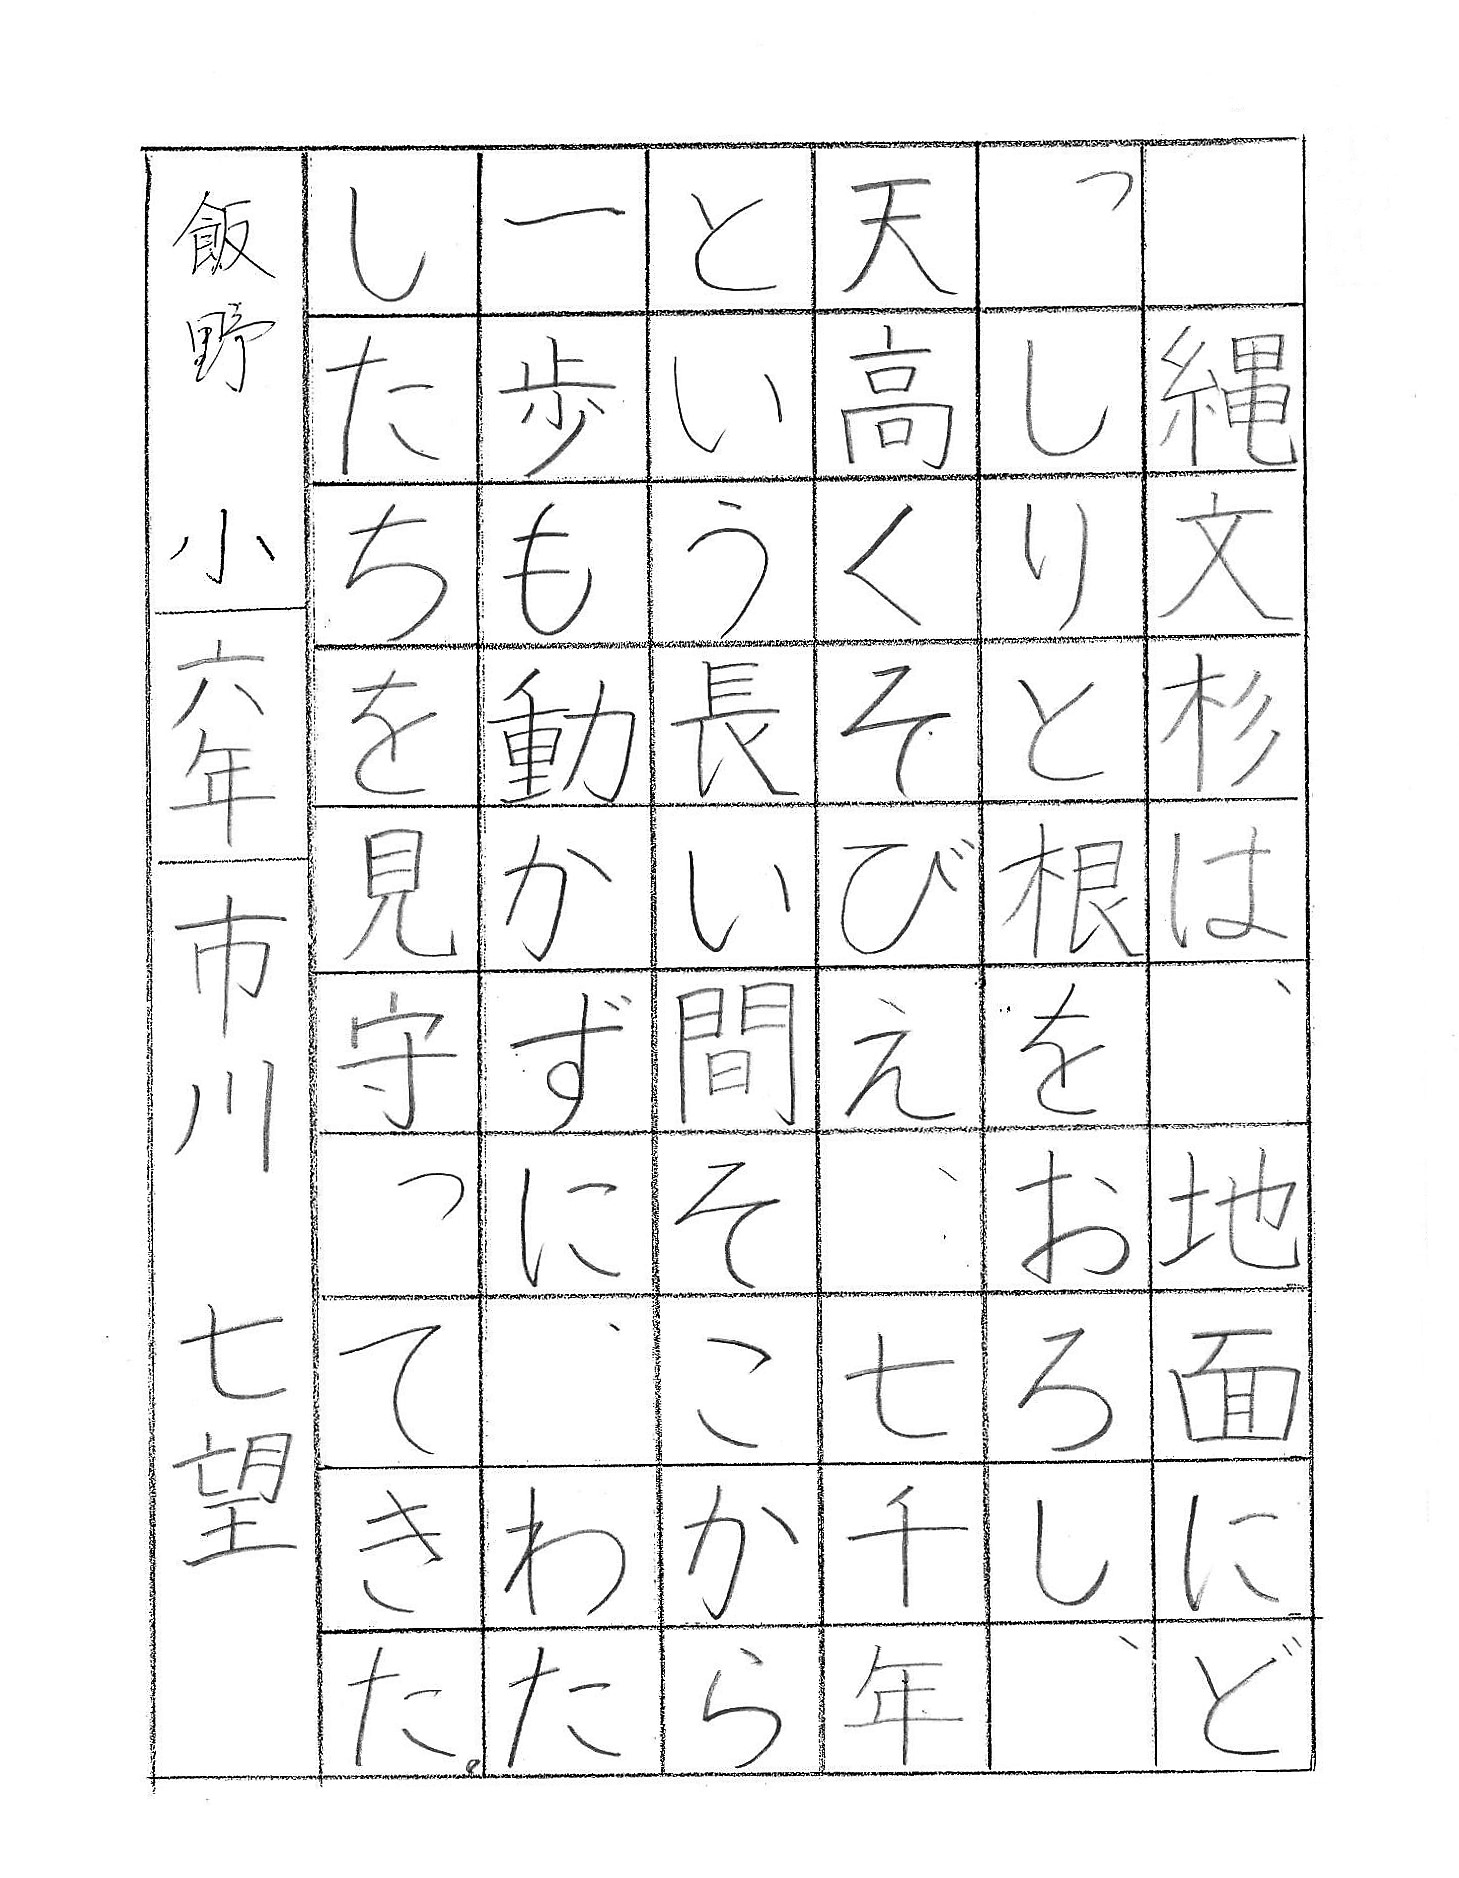 縄文杉は、地面にど
っしりと根をおろし、
天高くそびえ、七千年
という長い間そこから
一歩も動かずに、わた
したちを見守ってきた。
飯野小 六年 市川 七望